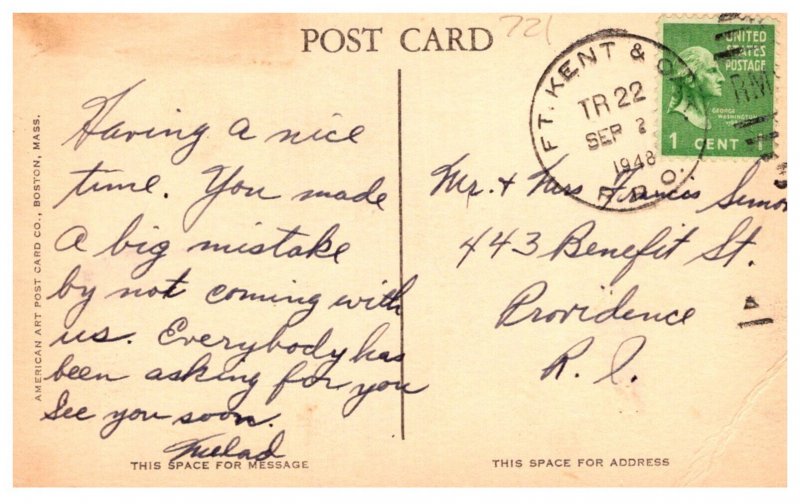 POST CARD
721
FT. KENT &
TR 22
SEP 2
1948
R.P.O.
UNITED
STATES
POSTAGE
GEORGE
WASHINGTON
1 CENT 1
AMERICAN ART POST CARD CO., BOSTON, MASS.
Having a nice
time. You made
a big mistake
by not coming with
us. Everybody has
been asking for you
See you soon.
Mr. & Mrs Francis
443 Benefit St.
Providence
R. I.
THIS SPACE FOR MESSAGE
THIS SPACE FOR ADDRESS